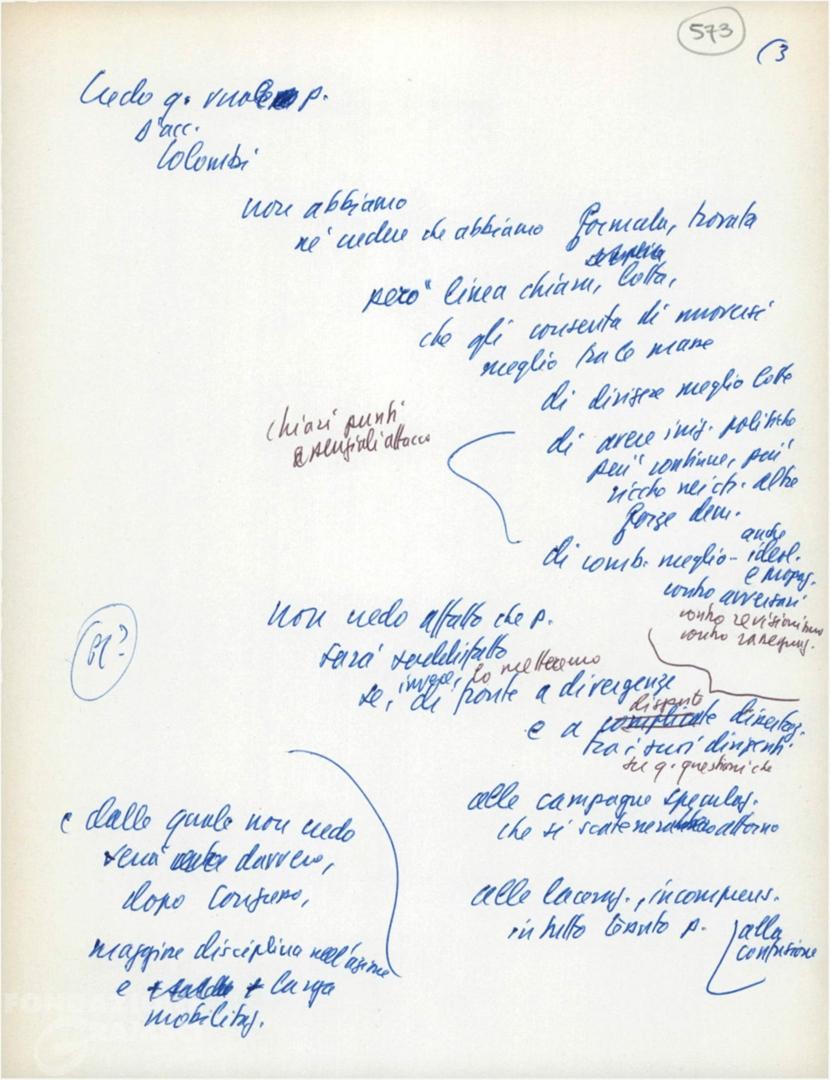 573
(3
Credo q. vuole p.
D'acc.
Colombi
non abbiamo
né credere che abbiamo formula, trovata
però linea chiara, lotta,
che gli consenta di muoversi
meglio tra le masse
di dirigere meglio lotte
chiari punti
essenziali attacco
di avere iniz. politiche
più continue, più
ricche nei cfr. altre
forze dem.
di comb. meglio - anche ideol.
e propag.
contro avversari
contro revisionismo
contro
non credo affatto che p.
sarà soddisfatto
se, invece, lo mettessimo
di fronte a divergenze
e a dispute
tra i suoi dirigenti
su q. questioni che
alle campagne speculaz.
che si scatenerebbero attorno
alle laceraz., incomprens.
in tutto l'arto p.
alla
confusione
e dalle quali non credo
verrà davvero,
dopo Congresso,
maggiore disciplina nell'azione
e larga
mobilitaz.
FONDAZIONE